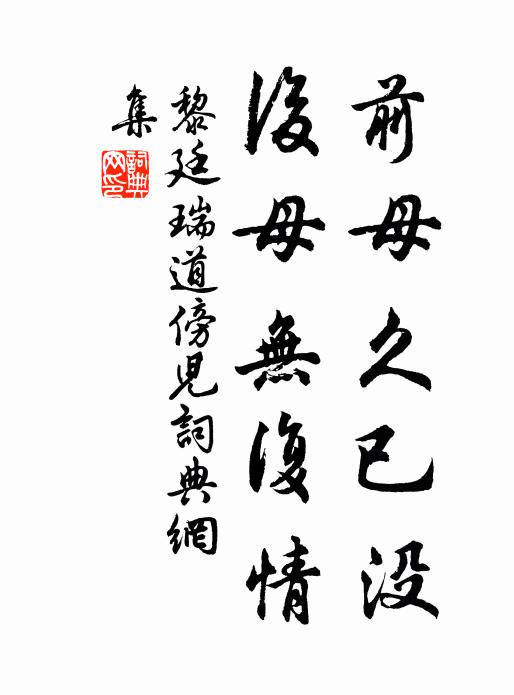 前母久已没
後母無復情
黎廷瑞道傍兒詞典網
集
詞典
网印